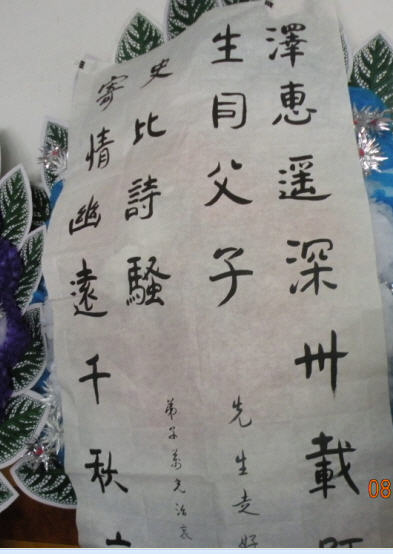 澤惠遥深卅載
生同父子
先生走好
寄情幽遠千秋
史比詩騷
弟子萬光治哀
08